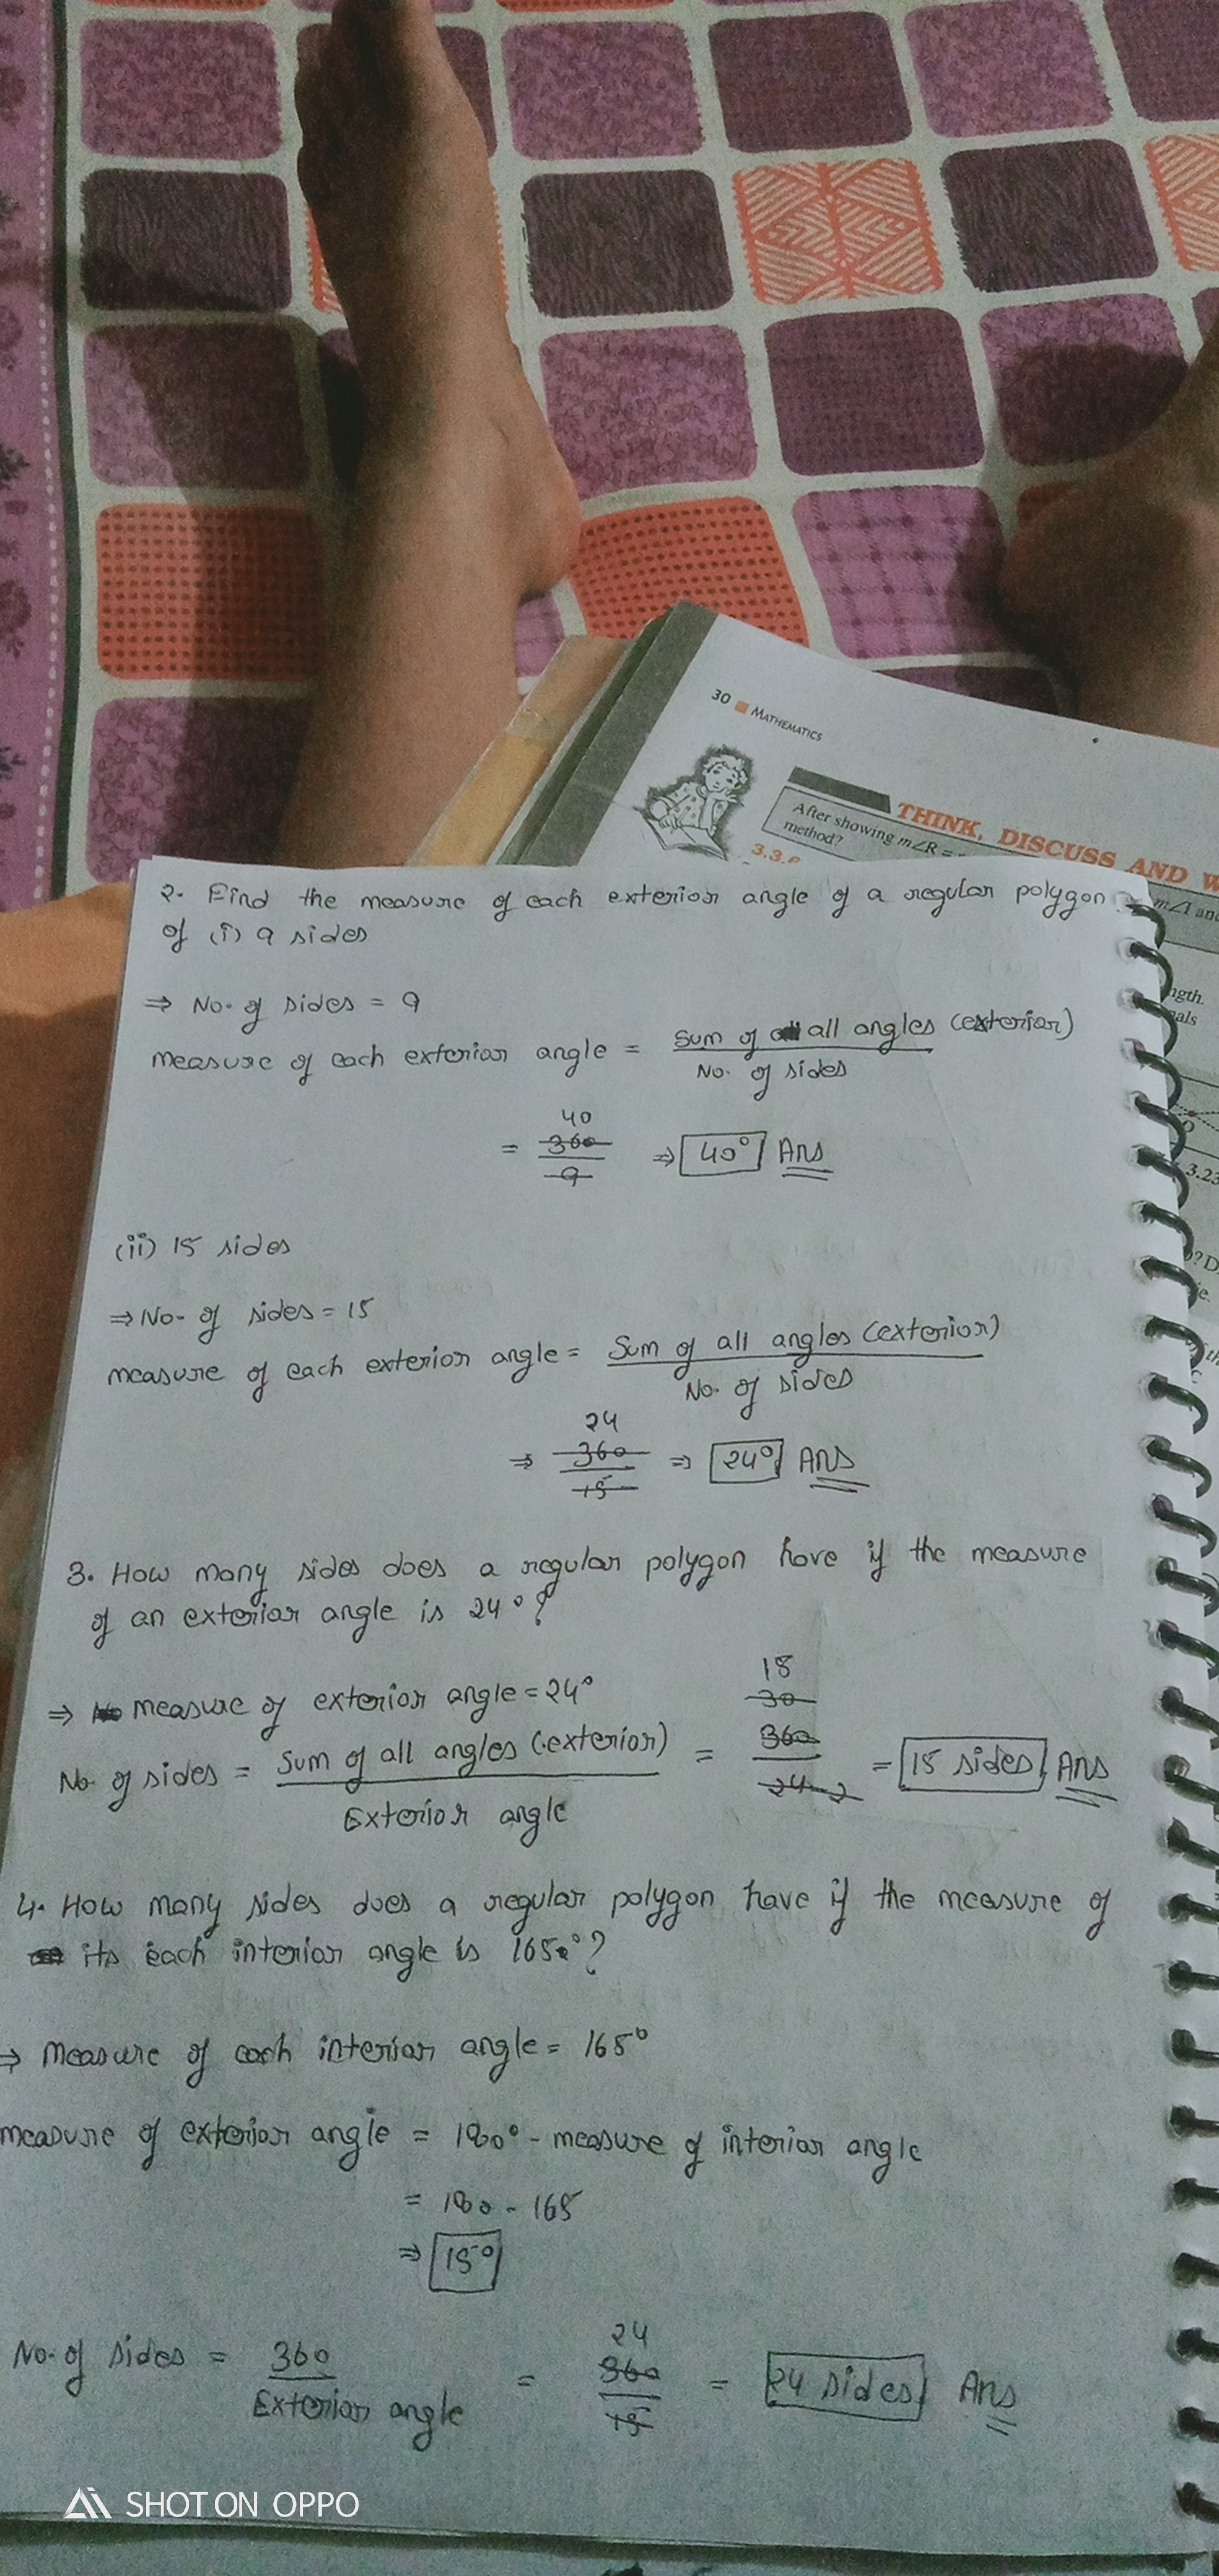 30 MATHEMATICS
THINK, DISCUSS AND W
After showing m∠R =
method?
m∠I and
ngth.
als
3.23
2. Find the measure of each exterior angle of a regular polygon
of (i) 9 sides
⇒ No. of sides = 9
measure of each exterior angle = Sum of all angles (exterior)
No. of sides
40
= 360 ⇒ 40° Ans
9
(ii) 15 sides
⇒ No. of sides = 15
measure of each exterior angle = Sum of all angles (exterior)
No. of sides
24
⇒ 360 ⇒ 24° Ans
15
3. How many sides does a regular polygon have if the measure
of an exterior angle is 24°?
⇒ measure of exterior angle = 24°
No. of sides = Sum of all angles (exterior)
Exterior angle
15
30
= 360 = 15 sides Ans
24 2
4. How many sides does a regular polygon have if the measure of
its each interior angle is 165°?
⇒ Measure of each interior angle = 165°
measure of exterior angle = 180° - measure of interior angle
= 180 - 165
⇒ 15°
24
No. of sides = 360 = 360 = 24 sides Ans
Exterior angle 15
SHOT ON OPPO